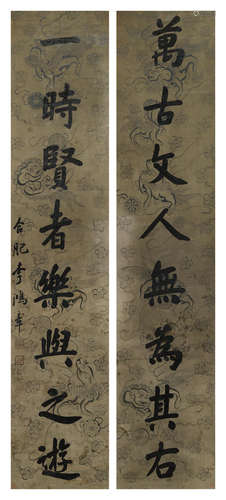 萬古文人無為其右
一時賢者樂與之遊
合肥李鴻章